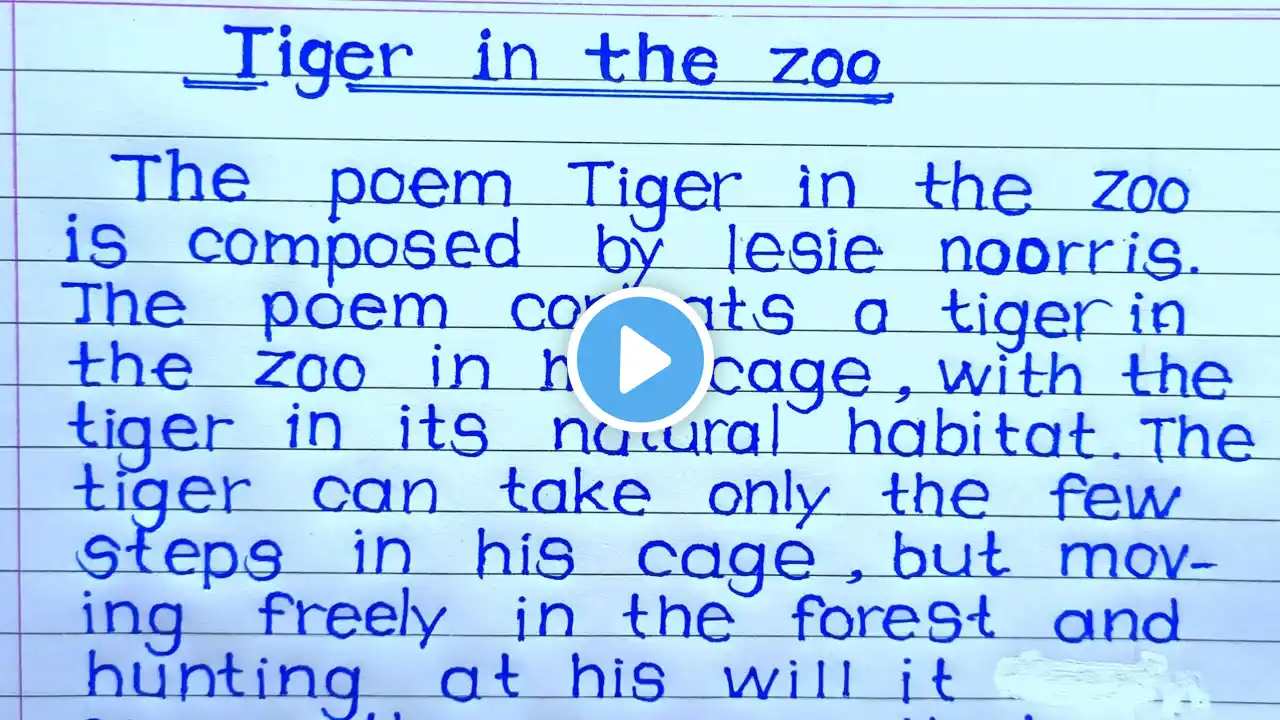 Tiger in the zoo
The poem Tiger in the zoo
is composed by lesie noorris.
The poem a tiger in
the zoo in cage, with the
tiger in its natural habitat. The
tiger can take only the few
steps in his cage, but mov-
ing freely in the forest and
hunting at his will it